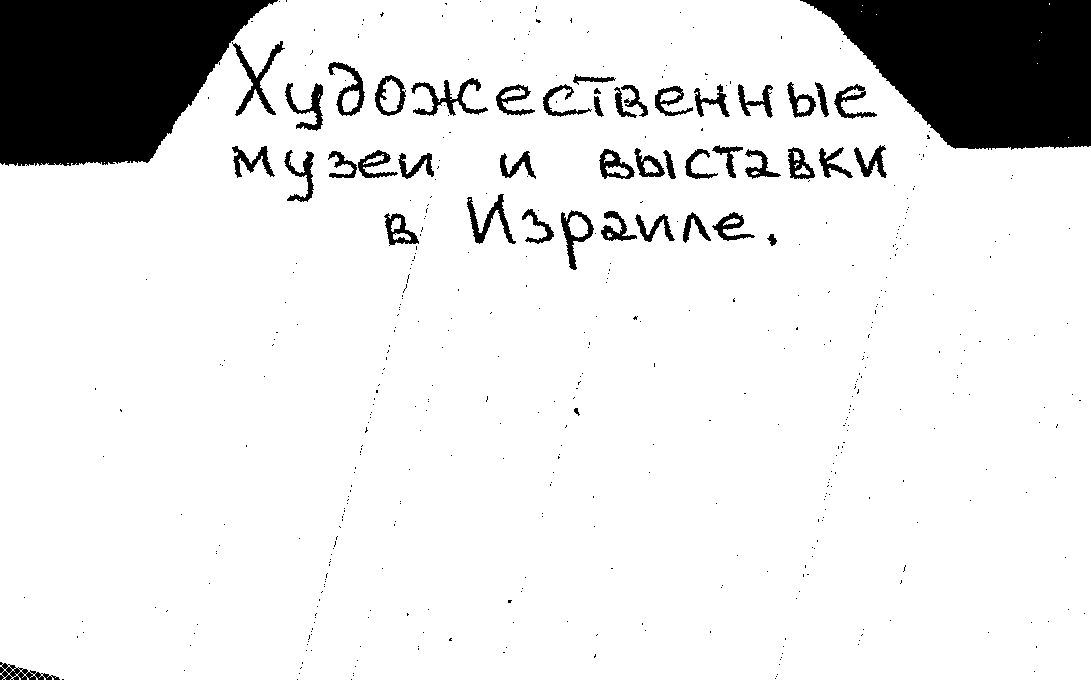 Художественные
музеи и выставки
в Израиле.